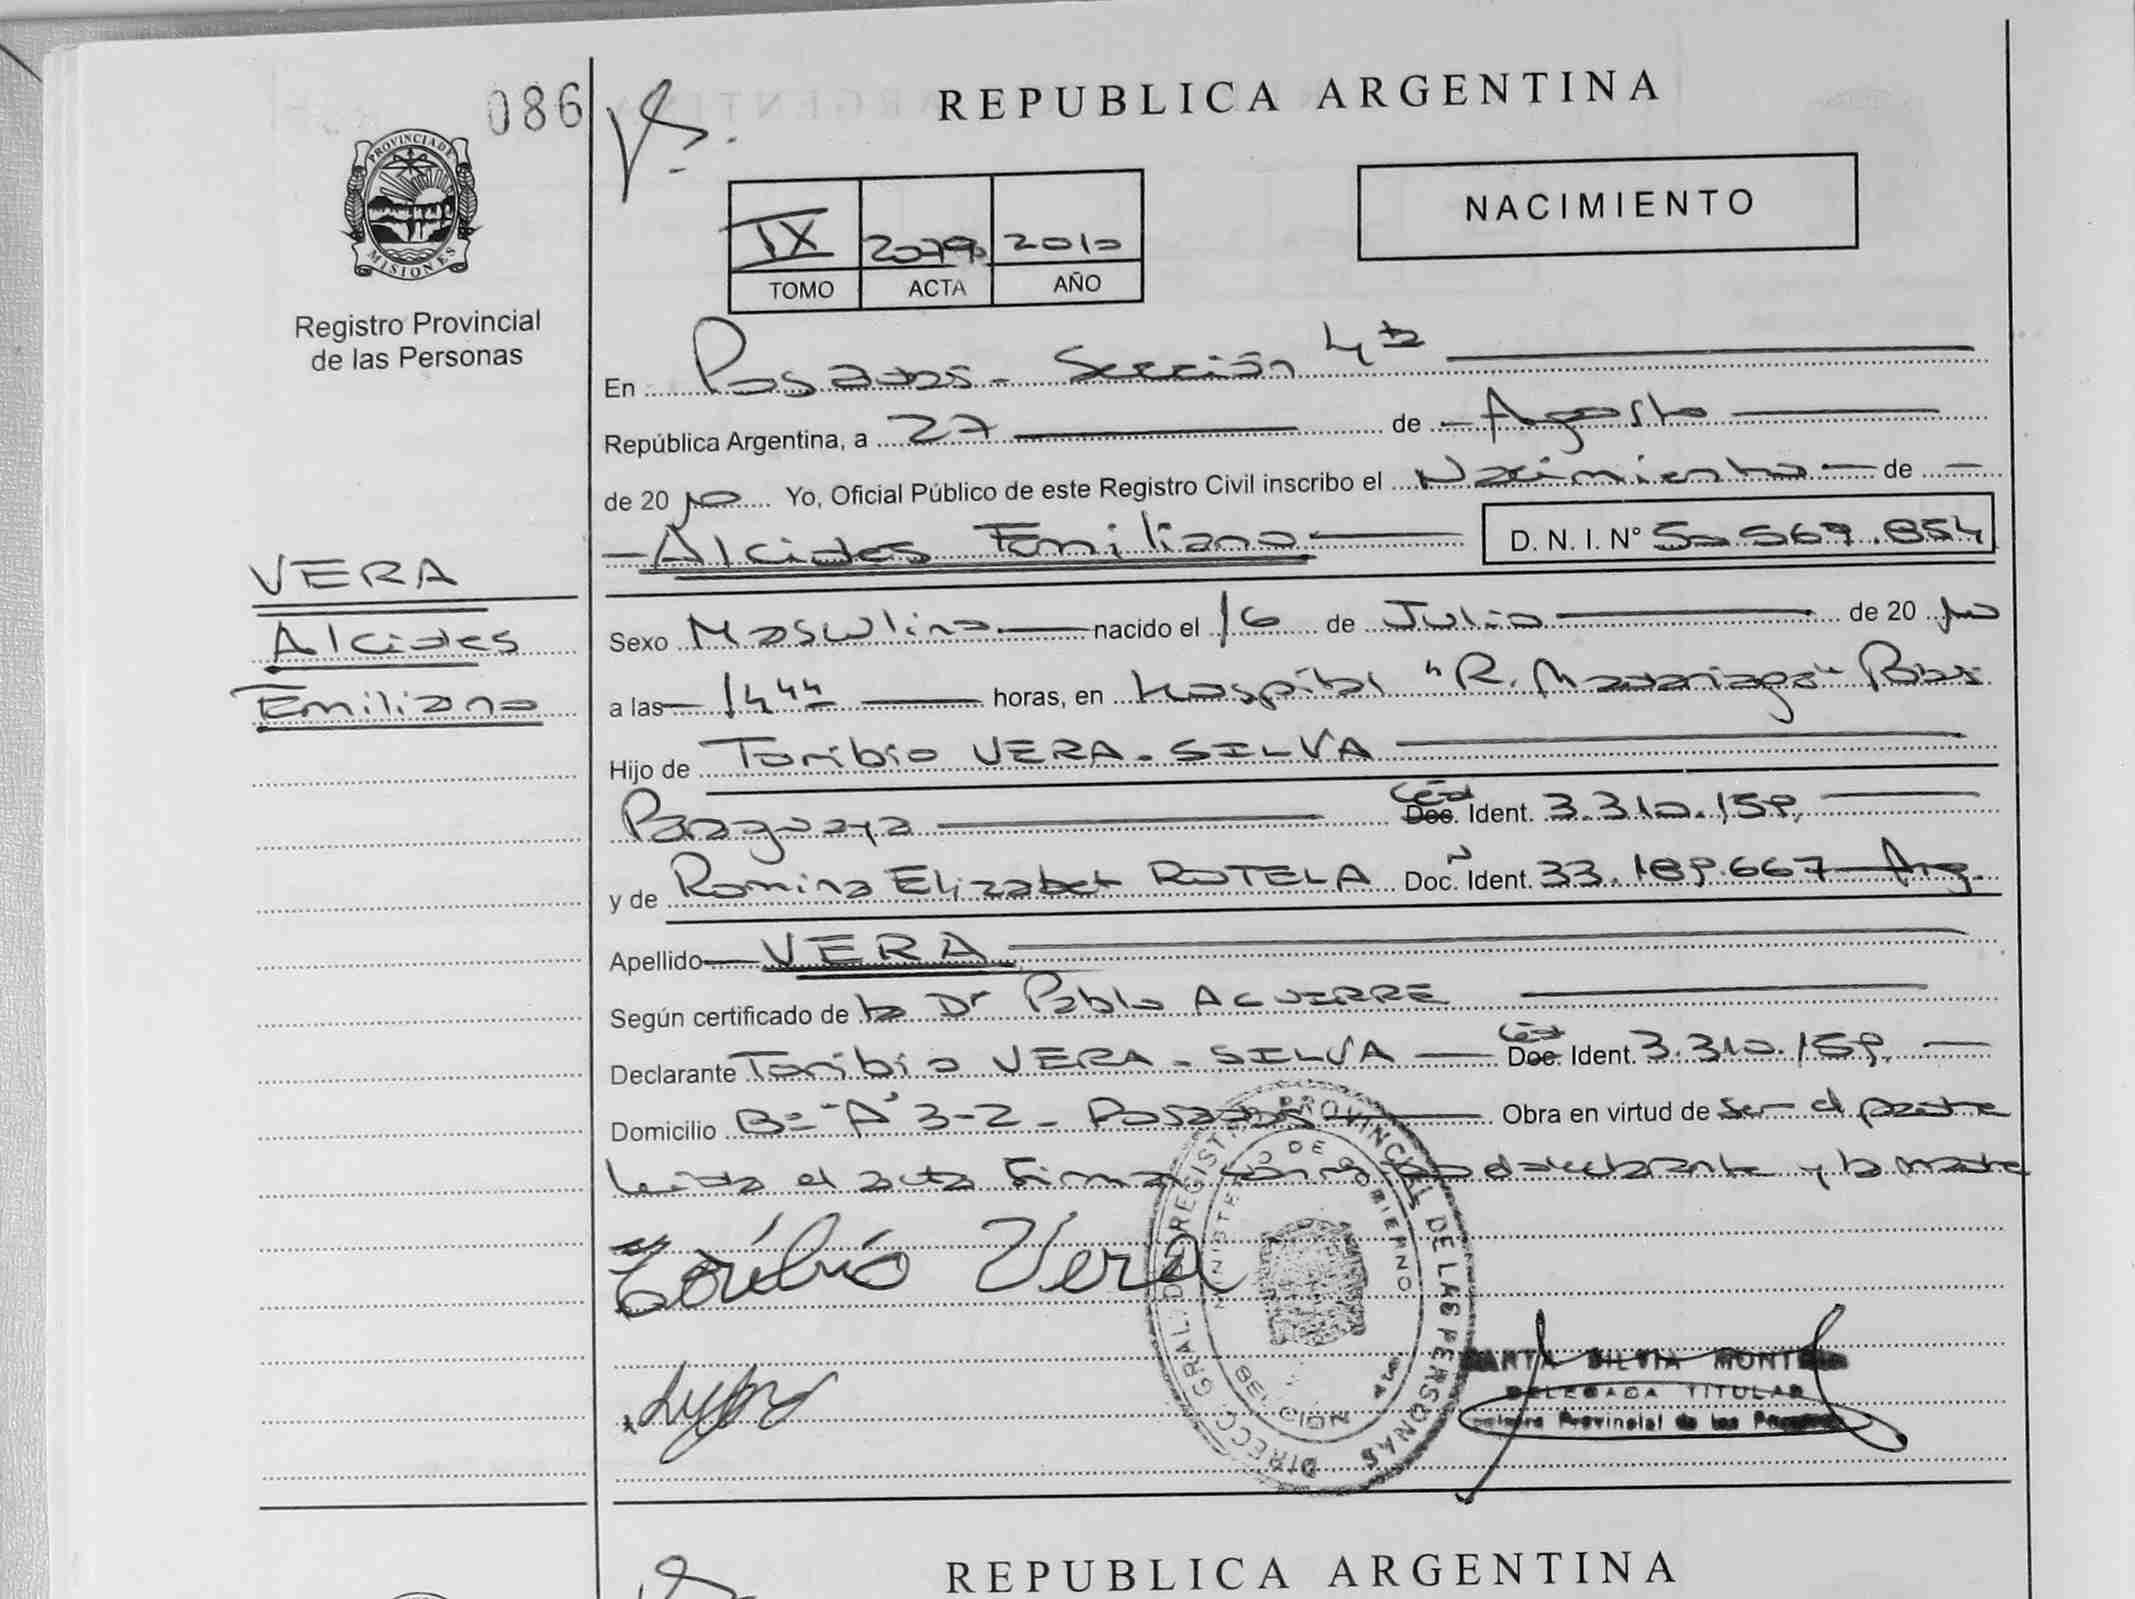 086
REPUBLICA ARGENTINA
PROVINCIA DE
MISIONES
NACIMIENTO
IX 2010
TOMO ACTA AÑO
Registro Provincial
de las Personas
En Posadas - Sección 4ta
República Argentina, a 27 de Agosto
de 2010 Yo, Oficial Público de este Registro Civil inscribo el Nacimiento de
Alcides Emiliano D. N. I. Nº 50.567.854
VERA
Alcides
Emiliano
Sexo Masculino nacido el 16 de Julio de 2010
a las 14 44 horas, en Hospital "R. Madariaga" Pdas
Hijo de Toribio VERA - SILVA
Paraguaya Céd Doc. Ident. 3.310.159.
y de Romina Elizabet ROTELA Doc. Ident. 33.189.667 - Arg.
Apellido VERA
Según certificado de Dr Pablo AGUIRRE
Declarante Toribio VERA - SILVA Céd Doc. Ident. 3.310.159.
Domicilio Bº "A" 3-2 - Posadas Obra en virtud de ser el padre
leida el acta Firma declarante y la madre
Toribio Vera
DIRECC. GRAL. DE REGISTRO PROVINCIAL DE LAS PERSONAS
MINISTERIO DE GOBIERNO
SECCION 4ta
SILVIA
DELEGADA TITULAR
Provincial de las
REPUBLICA ARGENTINA